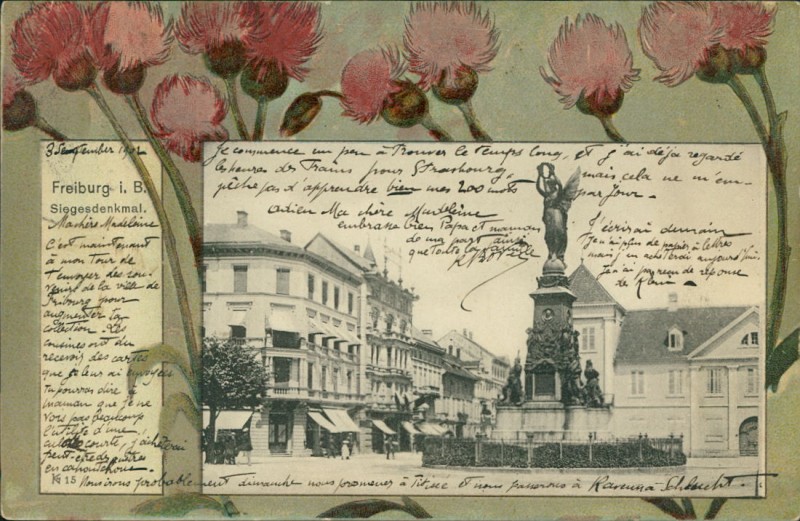 3 September 1902
Freiburg i. B.
Siegesdenkmal.
Ma chère Madeleine
C'est maintenant
à mon tour de
t'envoyer des sou-
venirs de la ville de
Fribourg pour
augmenter ta
collection. Les
cousines ont du
recevoir des cartes
que je leur ai envoyées
tu pourras dire à
maman que je ne
vois pas beaucoup
l'utilité d'une
courte, j'achèterai
peut-être des
en caoutchouc.
№ 15
Je commence un peu à trouver le temps long, et j'ai déjà regardé
les heures des Trains pour Strasbourg, mais cela ne m'em-
pêche pas d'apprendre bien mes 200 mots par jour.
Adieu Ma chère Madeleine
embrasse bien Papa et maman
de ma part ainsi
que toute la famille
J'écrirai demain
je n'ai plus de papier à lettres
mais j'en achèterai aujourd'hui
Je n'ai pas reçu de réponse
de
Nous irons probablement dimanche nous promener à Titisee et nous passerons à Ravenna Schlucht